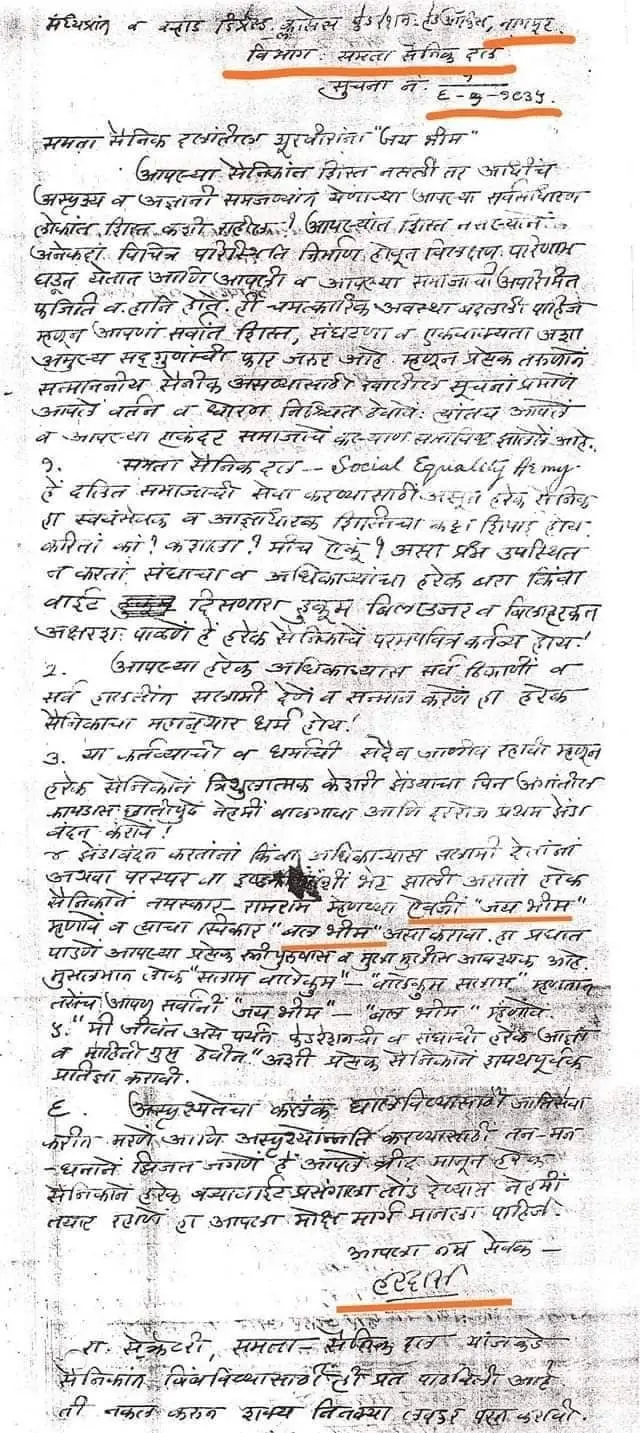 मध्यप्रांत व वऱ्हाड डिप्रेस्ड क्लासेस फेडरेशन हेड ऑफिस, नागपूर.
विभाग समता सैनिक दल
सूचना नं. १
६-७-१९३५
समता सैनिक दलांतील शूरवीरांना "जय भीम"
आपल्या सैनिकांत शिस्त नसली तर आधीच
अस्पृश्य व अज्ञानी समजण्यांत येणाऱ्या आपल्या सर्वसाधारण
लोकांत शिस्त कशी राहील? आपल्यांत शिस्त नसल्यानें
अनेकदां विचित्र परिस्थिति निर्माण होवून विलक्षण परिणाम
घडून येतात आणि आपली व आपल्या समाजाची अपरिमित
फजिति व हानि होते. ही चमत्कारिक अवस्था बदलली पाहिजे
म्हणून आपणां सर्वांत शिस्त, संघटणा व एकवाक्यता अशा
अमुल्य सद्गुणांची फार जरूर आहे. म्हणून प्रत्येक तरूणानें
सन्माननीय सैनीक असण्यासाठीं खालील सूचनां प्रमाणें
आपलें वर्तन व धोरण निश्चित ठेवावें. त्यांतच आपलें
व आपल्या एकंदर समाजाचें कल्याण समाविष्ट झालेलें आहे.
१. समता सैनिक दल -- Social Equality Army
हें दलित समाजाची सेवा करण्यासाठीं असून हरेक सैनिक
हा स्वयंसेवक व आज्ञाधारक शिस्तीचा कट्टा शिपाई होय.
करितां कां? कशाला? मीच ऐकूं? असा प्रश्न उपस्थित
न करतां संघाचा व अधिकाऱ्यांचा हरेक बरा किंवा
वाईट दिसणारा हुकूम बिलाउजर व बिलाहरकत
अक्षरशः पाळणें हें हरेक सैनिकाचें परमपवित्र कर्तव्य होय!
2. आपल्या हरेक अधिकाऱ्यास सर्व ठिकाणीं व
सर्व हालतींत सलामी देणें व सन्मान करणें हा हरेक
सैनिकाचा महान्‌ धर्म होय!
३. या कर्तव्याची व धर्माची सदैव जाणीव रहावी म्हणून
हरेक सैनिकानें त्रिशुलात्मक केशरी झेंड्याचा पिन अंगांतील
कापडास छातीपुढें नेहमीं बाळगावा आणि दररोज प्रथम झेंडा
वंदन करावें!
४ झेंडावंदन करतांनां किंवा अधिकाऱ्यास सलामी देतांनां
अथवा परस्पर वा भेट झाली असतां हरेक
सैनिकानें नमस्कार - रामराम म्हणण्या ऐवजीं "जय भीम"
म्हणावें व त्याचा स्विकार "बल भीम" असा करावा. हा प्रघात
पाडणें आपल्या प्रत्येक स्त्रीपुरुषास व मुला मुलींस आवश्यक आहे.
मुसलमान लोक "सलाम वालेकुम" - "वालेकुम सलाम" म्हणतात
तसेंच आपण सर्वांनीं "जय भीम" - "बल भीम" म्हणावे.
५. "मी जीवंत असे पर्यंत फेडरेशनची व संघाची हरेक आज्ञा
व माहिती गुप्त ठेवीन" अशी प्रत्येक सैनिकानें शपथपूर्वक
प्रतिज्ञा करावी.
६. अस्पृश्यतेचा कलंक घालविण्यासाठीं जातिसेवा
करीत मरणें आणि अस्पृश्योन्नति करण्यासाठीं तन-मन
-धनानें झिजत जगणें हें आपलें ब्रीद मानून हरेक
सैनिकानें हरेक बऱ्यावाईट प्रसंगाला तोंड देण्यास नेहमीं
तयार रहाणें हा आपला मोक्ष मार्ग मानला पाहिजे.
आपला नम्र सेवक -
हरदास
रा. सेक्रेटरी, समता - सैनिक दल यांजकडे
सैनिकांत बिंबविण्यासाठीं ही प्रत पाठविली आहे
ती नकल करून शक्य तितक्या लवकर परत करावी.